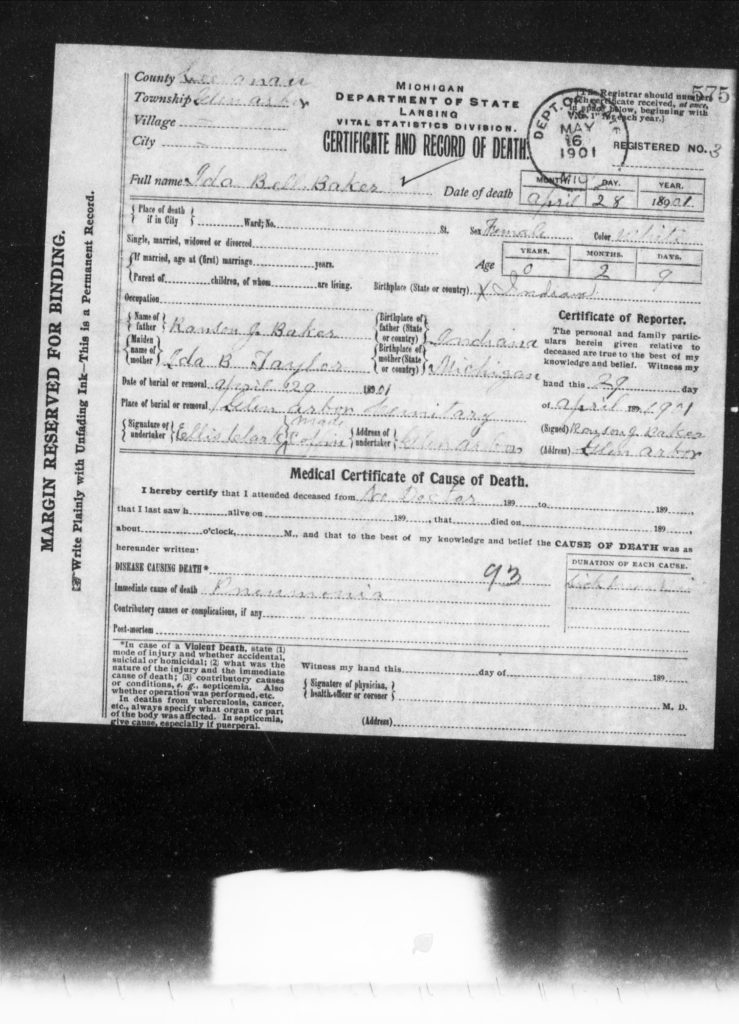 County Leelanau
Township Glen arbor
Village —
City —
MICHIGAN
DEPARTMENT OF STATE
LANSING
VITAL STATISTICS DIVISION.
CERTIFICATE AND RECORD OF DEATH.
DEPT. OF
MAY
16
1901
MICH
575
(The Registrar should number
each certificate received, at once,
in space below, beginning with
"No. 1" for each year.)
REGISTERED NO. 3
Full name Ida Bell Baker
Date of death
MONTH. DAY. YEAR.
April 28 1901
Place of death if in City Ward; No. St.
Sex Female Color White
Single, married, widowed or divorced
If married, age at (first) marriage years.
Age
YEARS. MONTHS. DAYS.
0 2 9
Parent of children, of whom are living.
Birthplace (State or country) X Indiana
Occupation
Name of father Ranson J. Baker
Birthplace of father (State or country) Indiana
Maiden name of mother Ida B Taylor
Birthplace of mother (State or country) Michigan
Date of burial or removal April 29 1901
Place of burial or removal Glen Arbor Semitary
Signature of undertaker Ellis Clark made Coffin
Address of undertaker Glen arbor
Certificate of Reporter.
The personal and family particulars
herein given relative to
deceased are true to the best of my
knowledge and belief. Witness my
hand this 29 day
of April 1901
(Signed) Ranson J. Baker
(Address) Glen Arbor
Medical Certificate of Cause of Death.
I hereby certify that I attended deceased from No Doctor 189 to 189 ,
that I last saw h alive on 189 , that died on 189 ,
about o'clock, M., and that to the best of my knowledge and belief the CAUSE OF DEATH was as
hereunder written:
DISEASE CAUSING DEATH* 93
DURATION OF EACH CAUSE.
Immediate cause of death Pneumonia
Contributory causes or complications, if any
Post-mortem
*In case of a Violent Death, state (1)
mode of injury and whether accidental,
suicidal or homicidal; (2) what was the
nature of the injury and the immediate
cause of death; (3) contributory causes
or conditions, e. g., septicemia. Also
whether operation was performed, etc.
In deaths from tuberculosis, cancer,
etc., always specify what organ or part
of the body was affected. In septicemia,
give cause, especially if puerperal.
Witness my hand this day of 189
Signature of physician, health officer or coroner M. D.
(Address)
MARGIN RESERVED FOR BINDING.
Write Plainly with Unfading Ink—This is a Permanent Record.